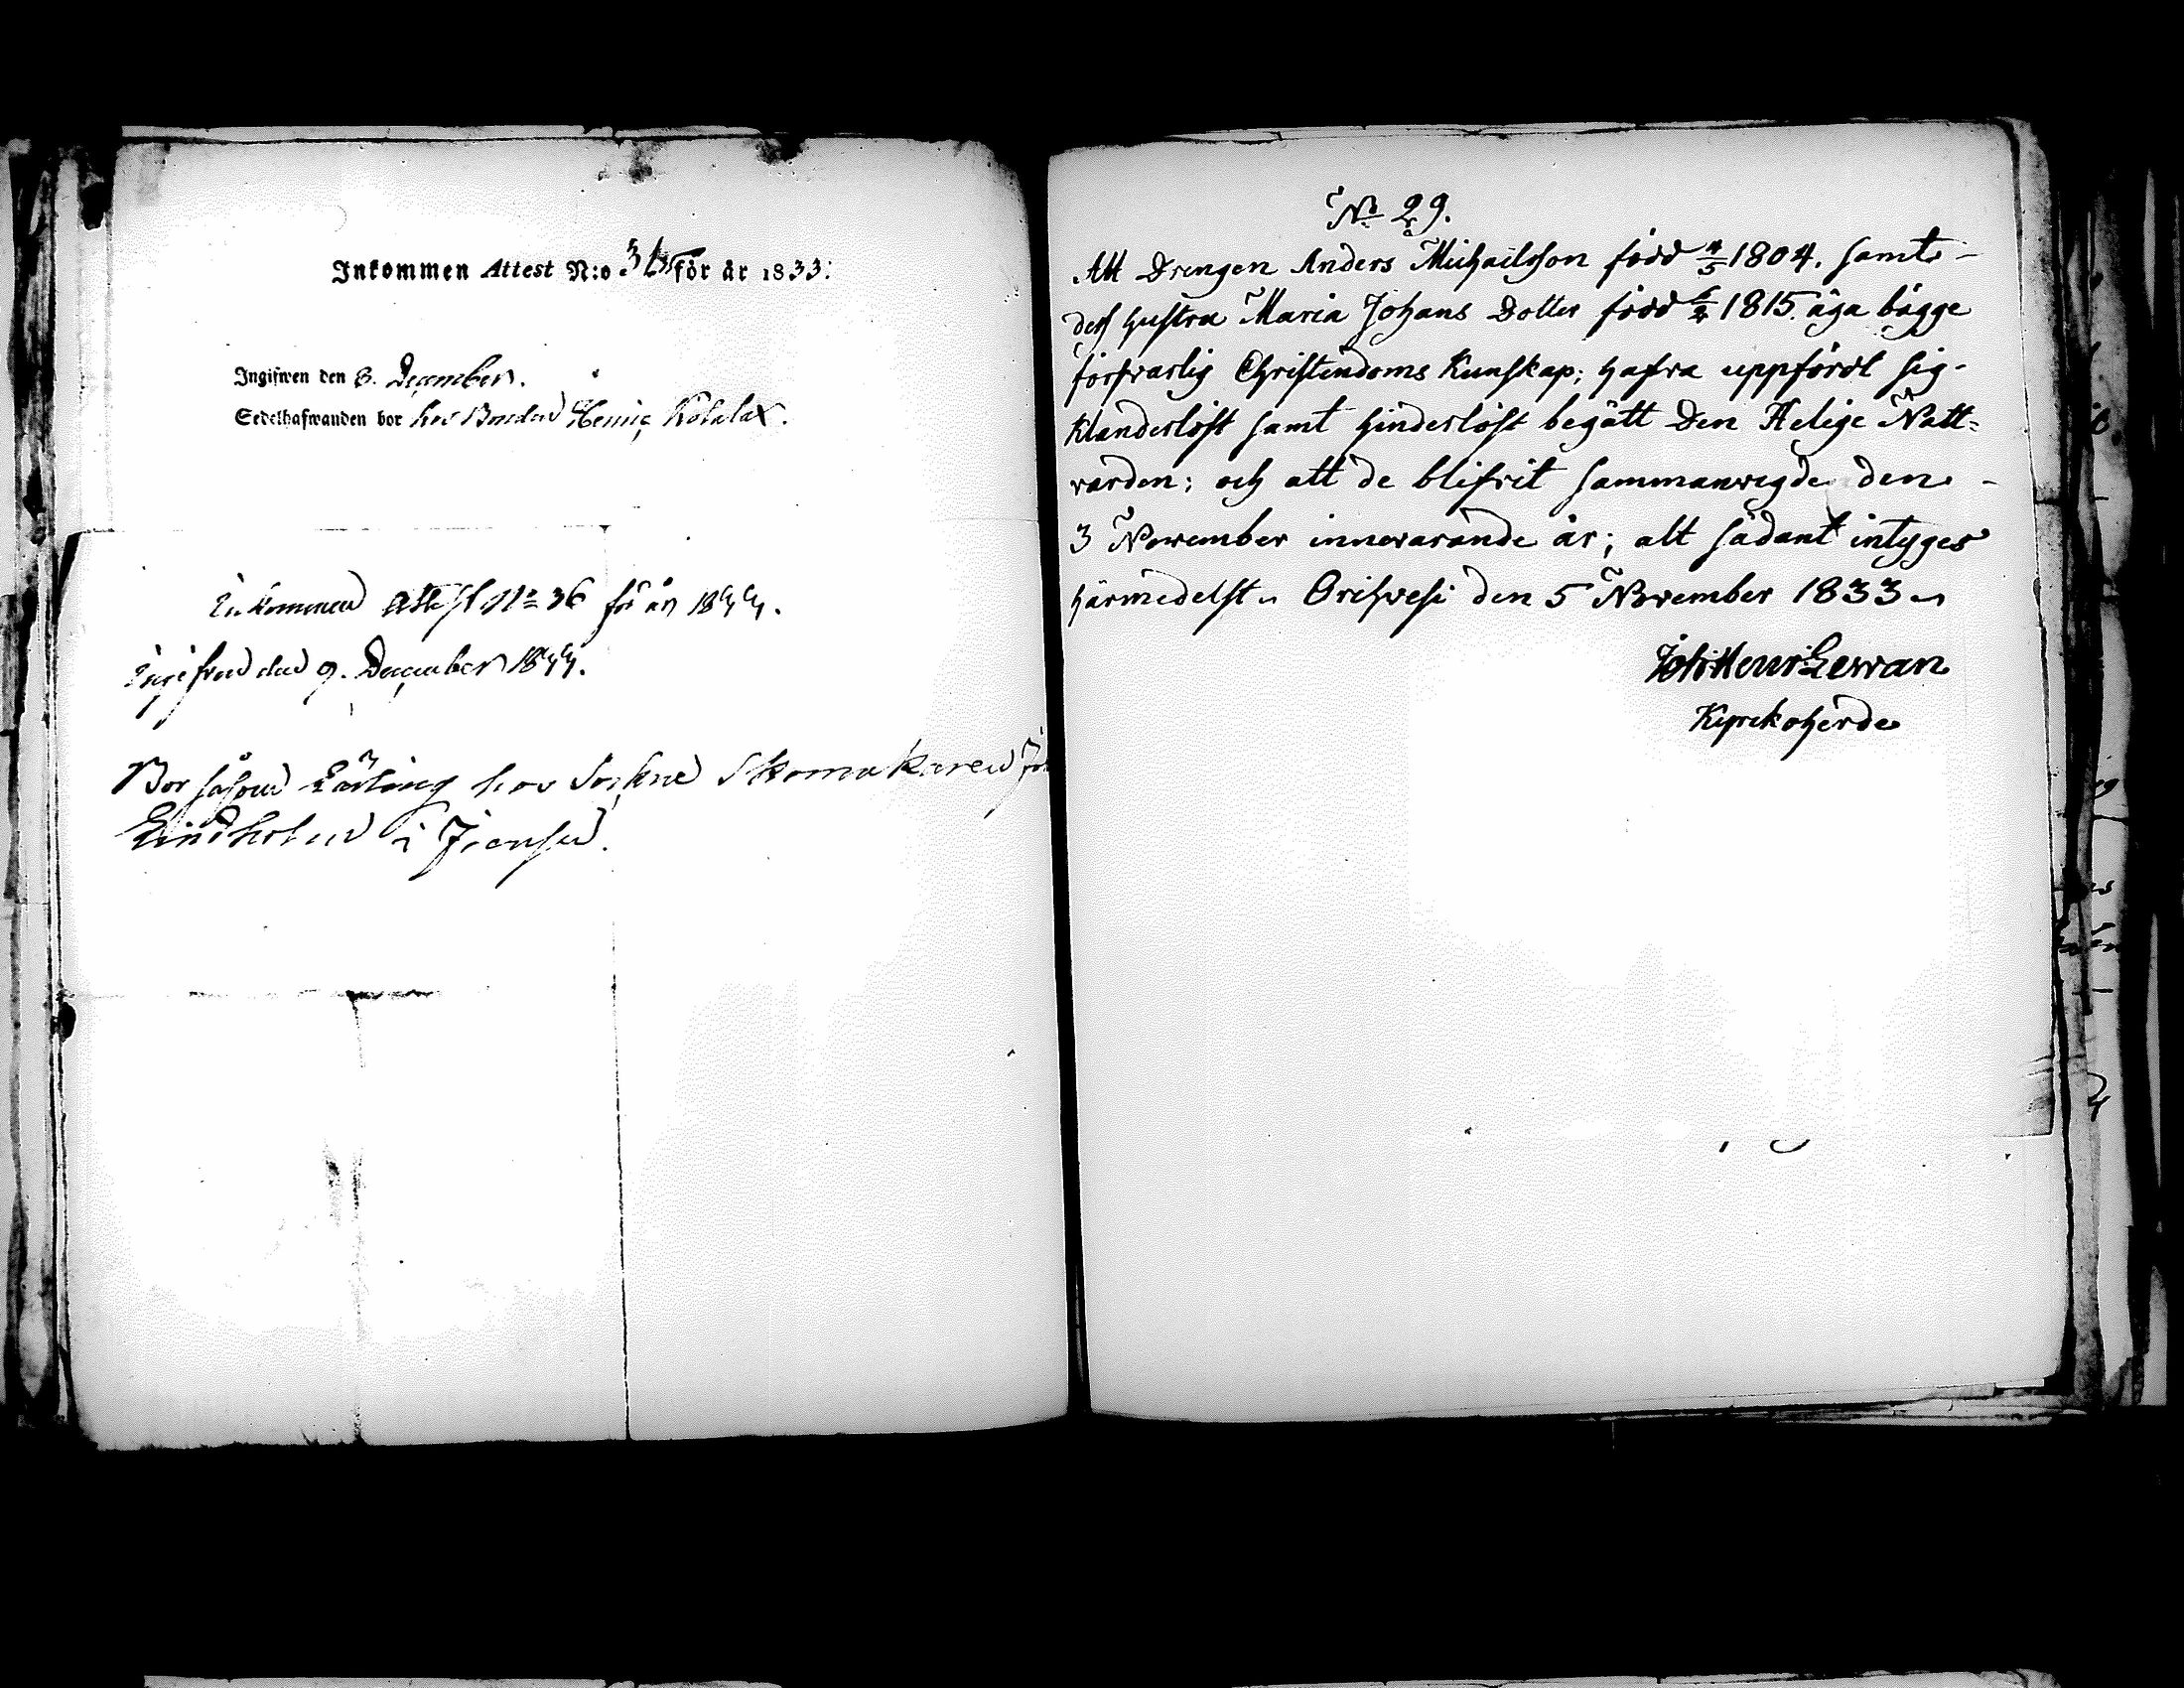 Inkommen Attest N:o 36 för år 1833.
Ingifwen den 8. December.
Sedelhafwanden bor hos Bonden Heinig Kålalax.
Inkommen Attest No 36 för år 1833.
Ingifven den 9. December 1833.
Bor såsom Lärling hos Sockne Skomakaren
Lindholm i Jiensu.
No 29.
Att Drengen Anders Michailsson född 4/5 1804. samt
dess hustru Maria Johans Dotter född 6/2 1815. äga bägge
försvarlig Christendoms Kunskap; hafva uppfördt sig
klanderlöst samt hinderlöst begått Den Helige Natt=
varden; och att de blifvit sammanvigde den
3 November innevarande år; alt sådant intyges
härmedelst. Orihvesi den 5 November 1833
Joh: Henr: Lewan
Kyrckoherde